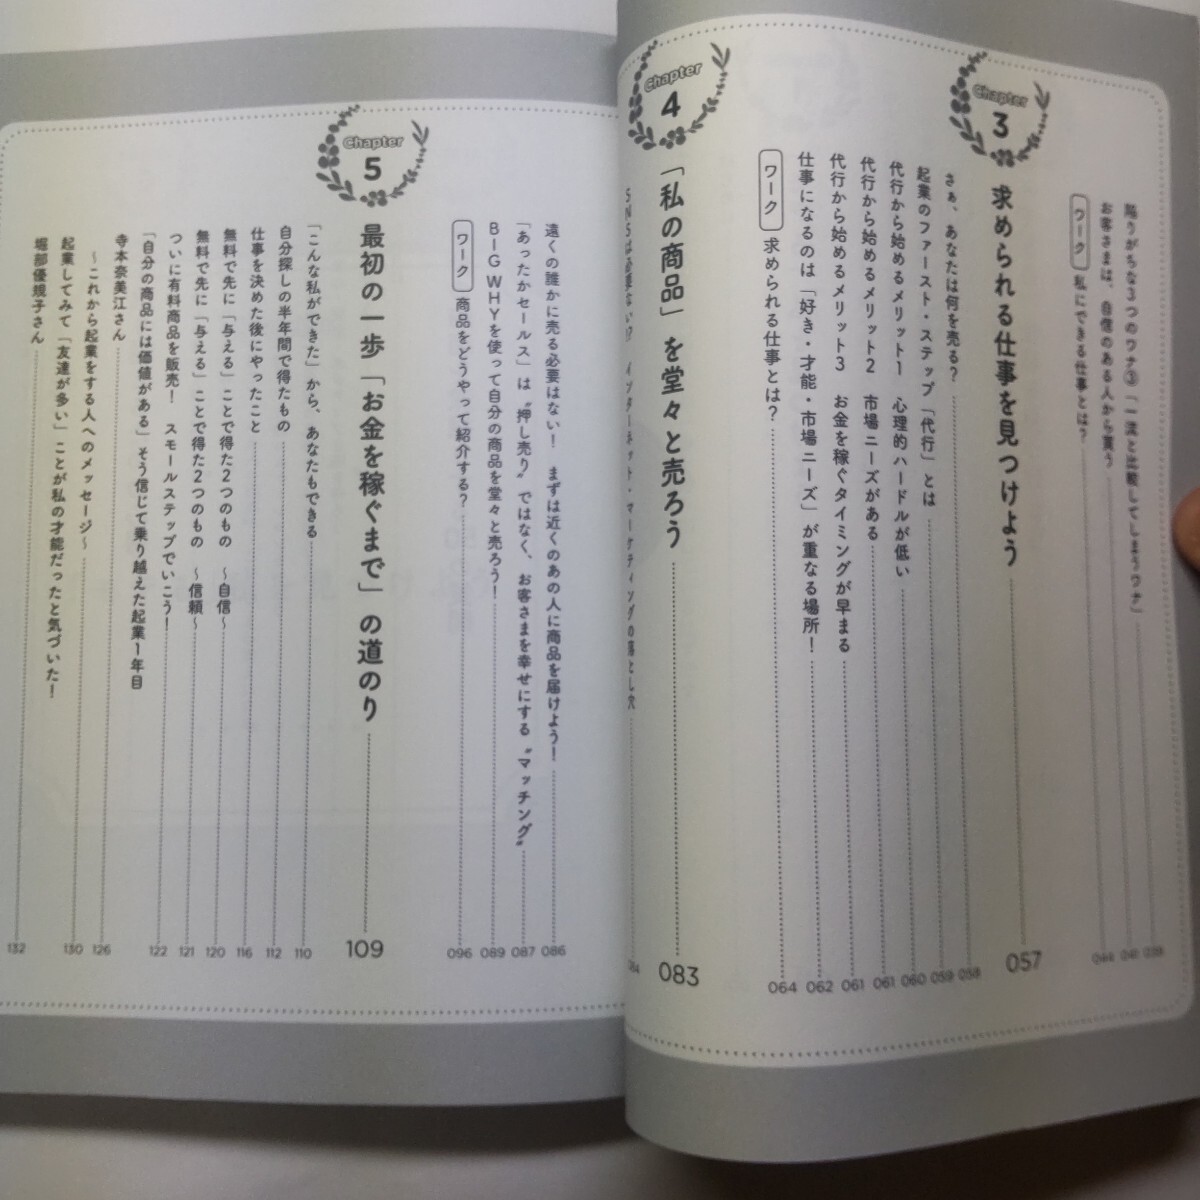 陥りがちな3つのワナ③「一流と比較してしまうワナ」 039
お客さまは、自信のある人から買う 041
ワーク 私にできる仕事とは? 044
Chapter 3 求められる仕事を見つけよう 057
さぁ、あなたは何を売る? 058
起業のファースト・ステップ「代行」とは 059
代行から始めるメリット1 心理的ハードルが低い 060
代行から始めるメリット2 市場ニーズがある 061
代行から始めるメリット3 お金を稼ぐタイミングが早まる 061
仕事になるのは「好き・才能・市場ニーズ」が重なる場所! 062
ワーク 求められる仕事とは? 064
Chapter 4 「私の商品」を堂々と売ろう 083
SNSは必要ない? インターネット・マーケティングの落とし穴 084
遠くの誰かに売る必要はない! まずは近くのあの人に商品を届けよう! 086
「あったかセールス」は“押し売り”ではなく、お客さまを幸せにする“マッチング” 087
BIG WHYを使って自分の商品を堂々と売ろう! 089
ワーク 商品をどうやって紹介する? 096
Chapter 5 最初の一歩「お金を稼ぐまで」の道のり 109
「こんな私ができた」から、あなたもできる 110
自分探しの半年間で得たもの 112
仕事を決めた後にやったこと 116
無料で先に「与える」ことで得た2つのもの ~自信~ 120
無料で先に「与える」ことで得た2つのもの ~信頼~ 121
ついに有料商品を販売! スモールステップでいこう! 122
「自分の商品には価値がある」そう信じて乗り越えた起業1年目
寺本奈美江さん 126
~これから起業をする人へのメッセージ~ 130
起業してみて「友達が多い」ことが私の才能だったと気づいた!
堀部優規子さん 132